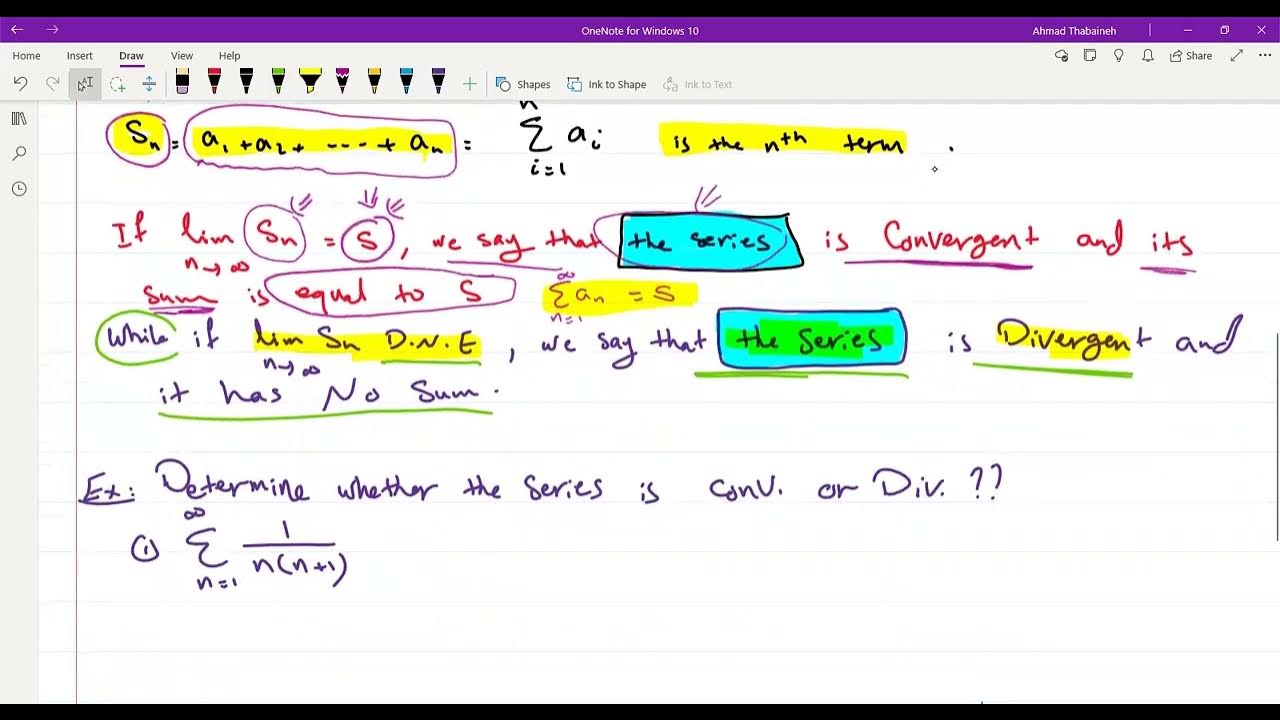 OneNote for Windows 10
Ahmad Thabaineh
Home Insert Draw View Help
Share
Shapes Ink to Shape Ink to Text
Sn = a1 + a2 + ---- + an = n Σ i=1 ai is the nth term .
If lim n→∞ Sn = S , we say that the series is Convergent and its
sum is equal to S ∞ Σ n=1 an = S
While if lim n→∞ Sn D.N.E , we say that the series is Divergent and
it has No Sum .
Ex: Determine whether the series is conv. or Div. ??
① ∞ Σ n=1 1 / n(n+1)